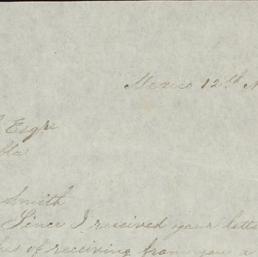 Mexico 12th N
Esqr
bla
Smith
Since I received your lette
of receiving from you a